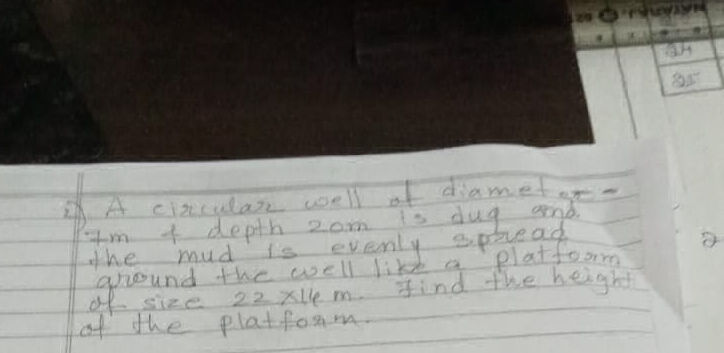 A circular well of diameter -
7m & depth 20m is dug and
the mud is evenly spread
around the well like a platform
of size 22 x14 m. Find the height
of the platform.